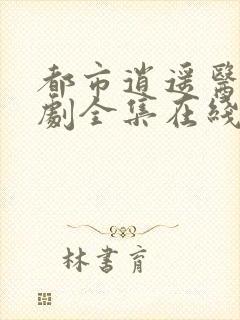 都市逍遥醫
劇全集在綫
林書育